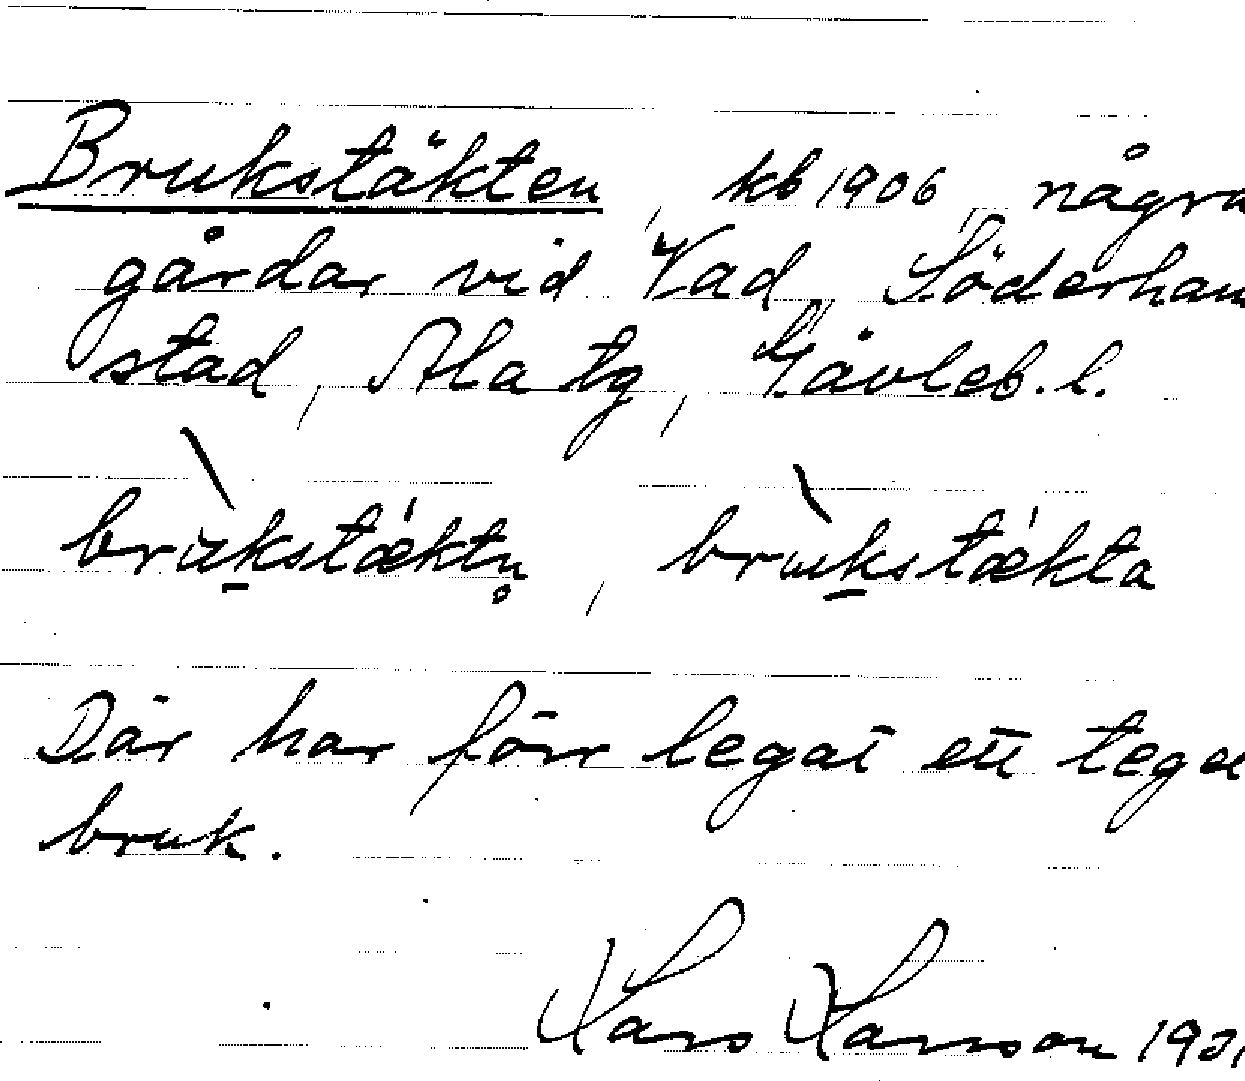 Brukstäkten, kb 1906, några
gårdar vid Vad, Söderham
stad, Ala tg, Gävleb. l.
brùkstǽktn̥, brùkstǽkta
Där har förr legat ett tegel
bruk.
Lars Larsson 1931